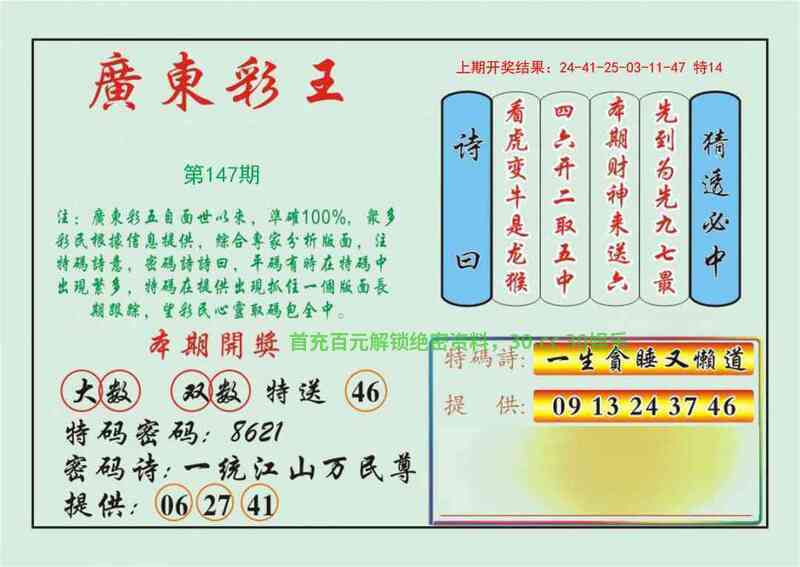 廣東彩王
第147期
注：廣東彩五自面世以来，準確100%，衆多
彩民根據信息提供，綜合專家分析版面，注
特码詩意，密碼詩詩曰，平碼有時在特碼中
出現繁多，特碼在提供出現抓住一個版面長
期跟踪，望彩民心靈取碼包全中。
上期开奖结果：24-41-25-03-11-47 特14
猜透必中
先到为先九七最
本期财神来送六
四六开二取五中
看虎变牛是龙猴
诗曰
本期開獎
首充百元解锁绝密资料，30
大数 双数 特送 46
特码密码：8621
密码诗：一统江山万民尊
提供：06 27 41
特碼詩：一生貪睡又懶道
提供：09 13 24 37 46